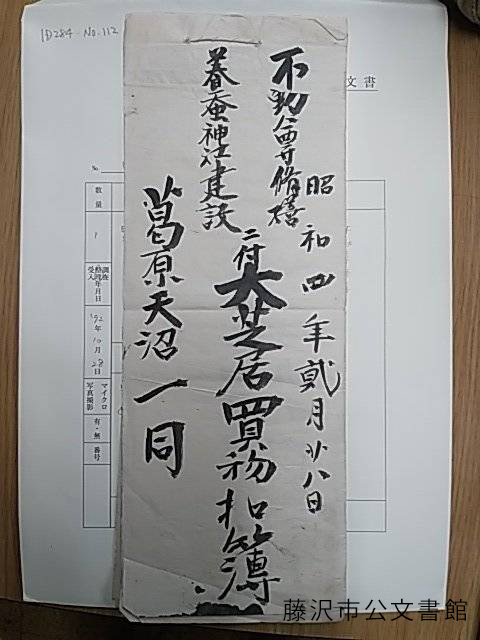 ID284-No.112
文書
No.
数量
1
調査
受入
年月日
'92年10月28日
マイクロ
写真撮影
有・無
番号
不動尊修繕
養蚕神社建設
昭和四年貳月廿八日
二付大芝居買物扣簿
葛原天沼一同
藤沢市公文書館